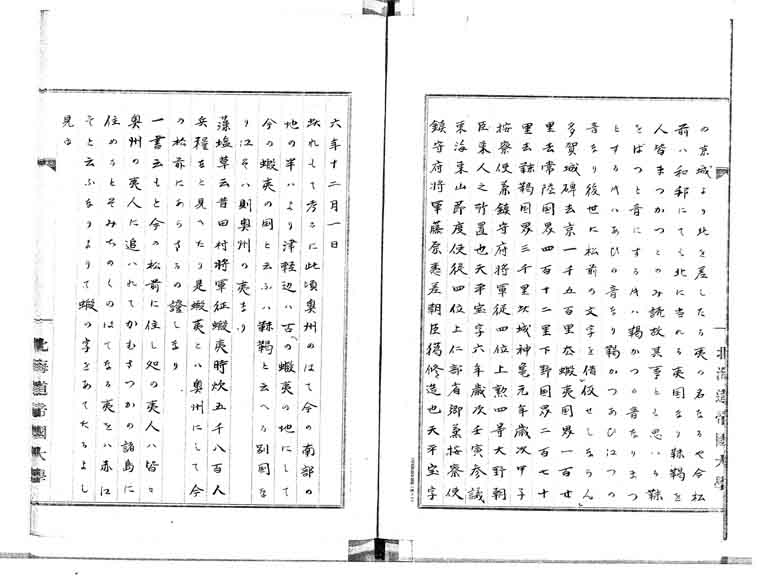 の京城より北を差したる夷の名なるや今松
前ハ和邦にても北に当れる夷国なり靺鞨を
人皆まつかつとのみ読故其事とも思ハる靺
をばつと音にする時ハ鞨かつの音なりまつ
とする時ハあひの音なり鞨かつあひはつの
音なり後世に松前の文字を借仮せしならん
多賀城碑去京一千五百里去蝦夷国界一百廿
里去常陸国界四百十二里下野国界二百七十
里去靺鞨国界三千里此城神亀元年歳次甲子
按察使兼鎮守府将軍従四位上勲四等大野朝
臣東人之所置也天平宝字六年歳次壬寅参議
東海東山節度使従四位上仁部省卿兼按察使
鎮守府将軍藤原恵美朝臣𤟱修造也天平宝字
北海道帝国大学
六年十二月一日
此れもて考るに此頃奥州のはて今の南部の
地の半ハより津軽辺ハ古への蝦夷の地にして
今の蝦夷の国と云ふハ靺鞨と云へる別国な
り江そハ則奥州の夷なり
藻塩草云昔田村将軍征蝦夷時炊五千八百人
兵糧をと見へたり是蝦夷とハ奥州にして今
の松前にあらさるの證しなり
一書云もと今の松前に住し処の夷人ハ皆々
奥州の夷人に追ハれてかむさつかの諸島に
住めるとそみちのくのはてなる夷をハ赤江
そと云ふなりよりて蝦の字をあてたるよし
見ゆ
北海道帝国大学